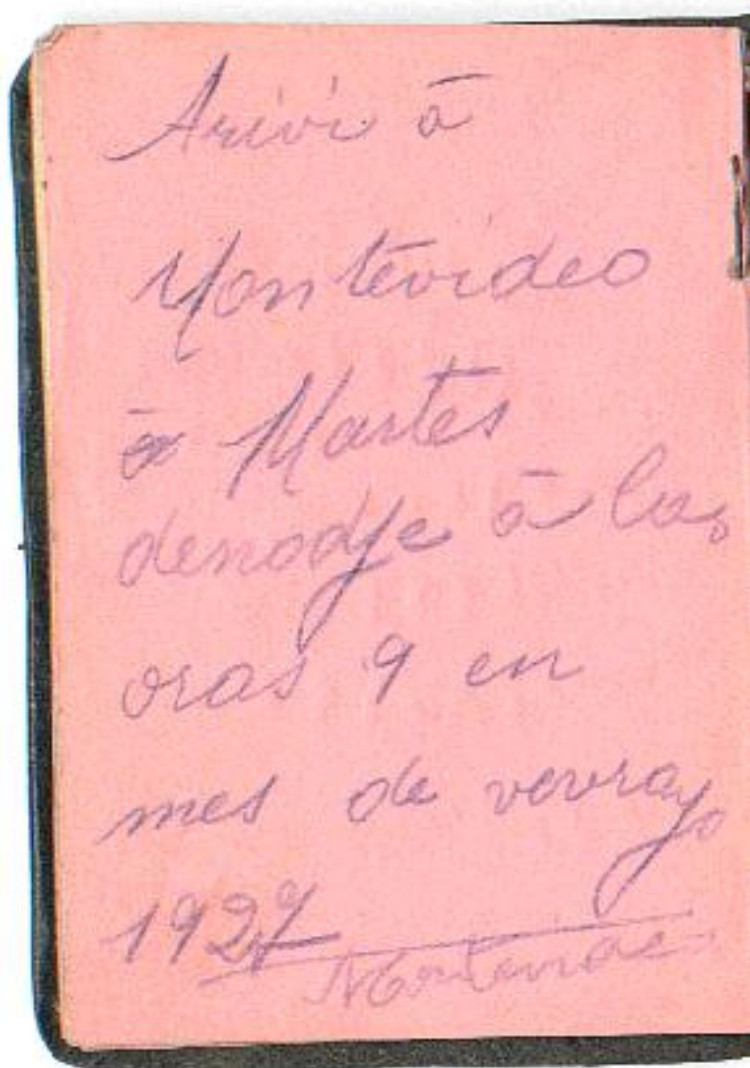 Arivi à
Montevideo
à Martes
denodje à las
oras 9 en
mes de vevrayo
1927
Montevideo